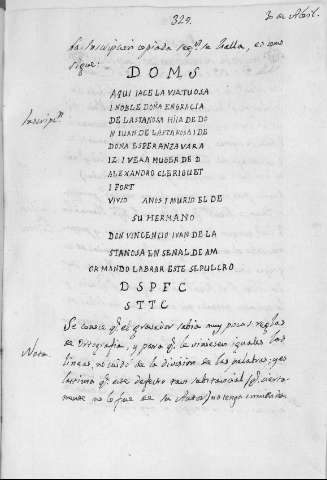 329.
30 de Abril.
La Inscripcion copiada segn. se halla, es como
sigue:
Inscripn.
D O M S
AQUI IACE LA VIRTUOSA
I NOBLE DOÑA ENGRACIA
DE LASTANOSA HIIA DE DO
N IUAN DE LASTANOSA I DE
DOÑA ESPERANZA VARA
IZ I VERA MUGER DE D
ALEXANDRO CLERIGUET
I FORT
VIVIO AÑOS I MURIO EL DE
SU HERMANO
DON VINCENCIO IVAN DE LA
STANOSA EN SEÑAL DE AM
OR MANDO LABRAR ESTE SEPULCRO
D S P F C
S T T C
Se conoce qe. el gravador sabia muy pocas reglas
Nota. de Ortografia, y para qe. le viniesen iguales las
lineas, no cuidó de la division de las palabras; y es
lastima qe. este defecto tan substancial (qe. cierta-
mente no lo fue de su Autor) no tenga